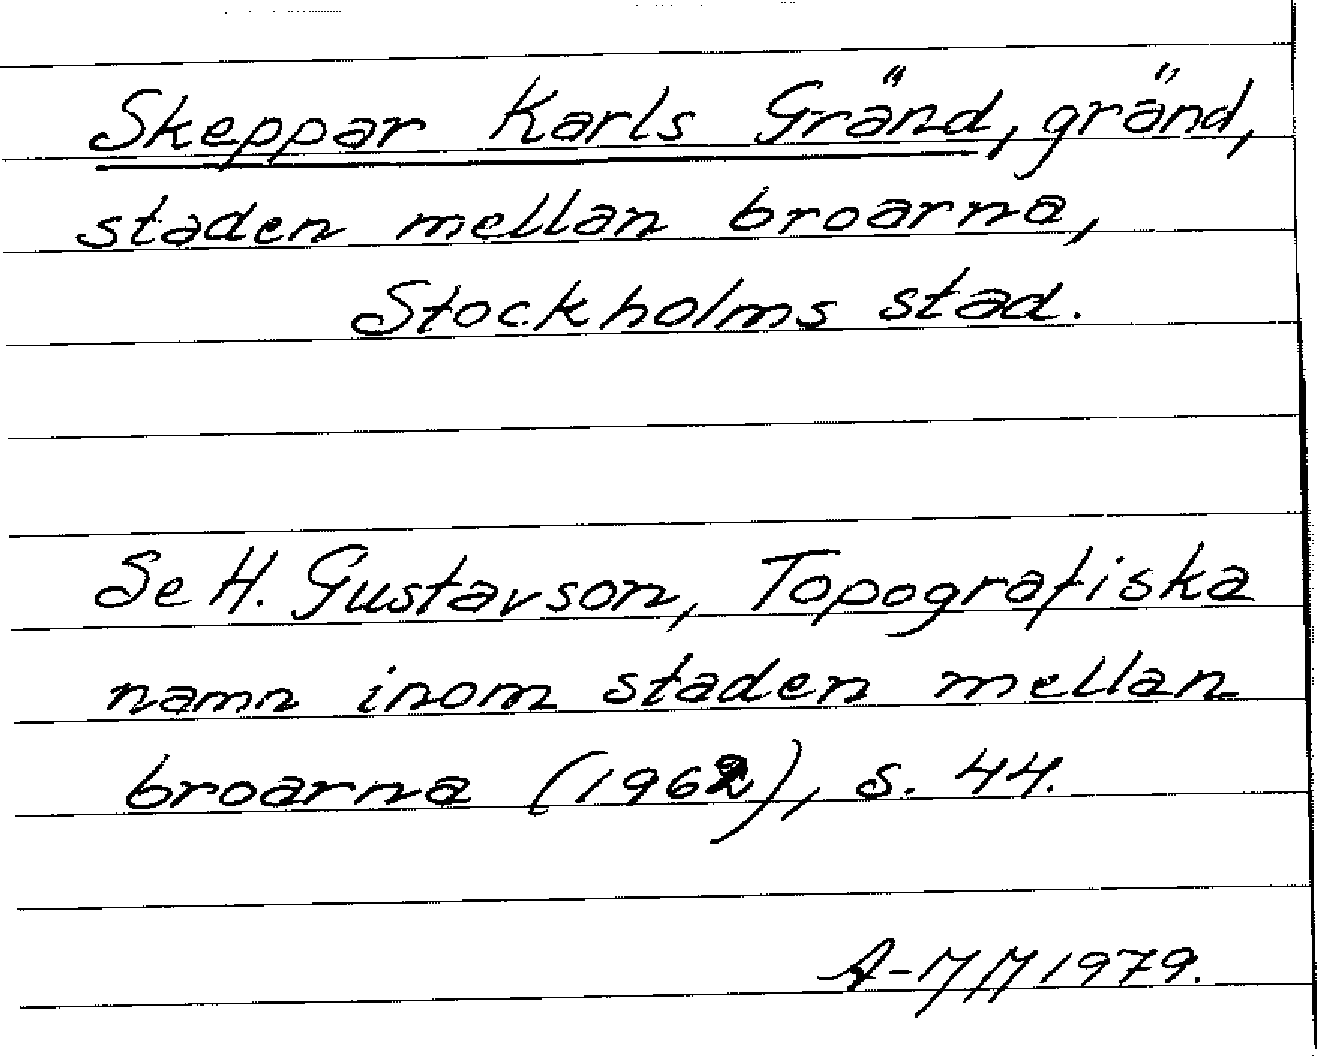 Skeppar Karls Gränd, gränd,
staden mellan broarna,
Stockholms stad.
Se H. Gustavson, Topografiska
namn inom staden mellan
broarna (1962), s. 44.
1979.